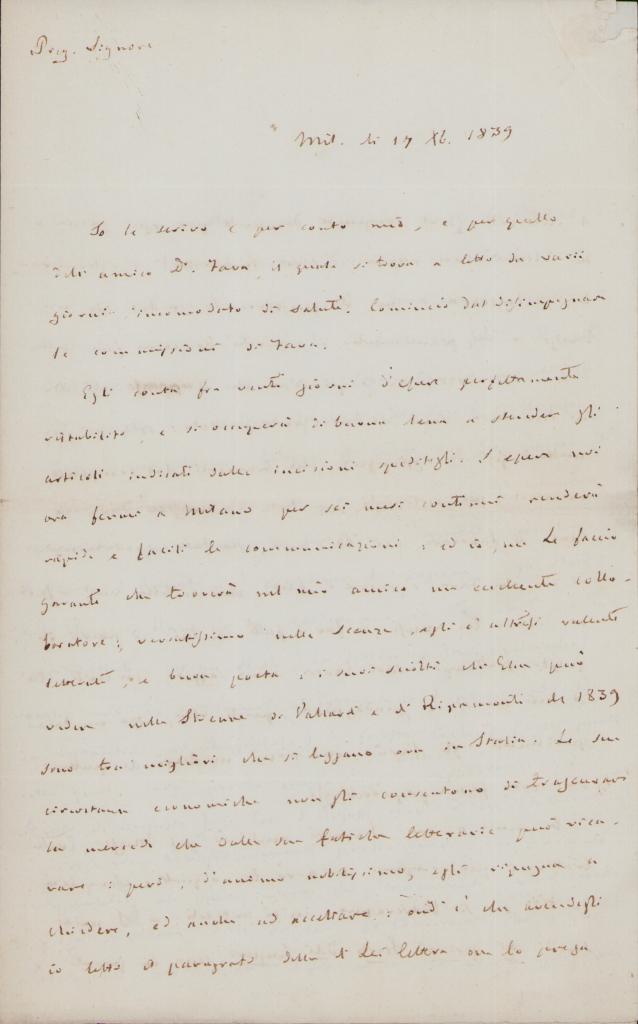 Preg. Signore
Mil. li 17 Xb. 1839
Io le scrivo e per conto mio, e per quello
dell'amico Dr. Fava, il quale si trova a letto da varii
giorni incomodato di salute. Comincio dal disimpegnare
le commissioni di Fava.
Egli conta fra venti giorni d'esser perfettamente
ristabilito, e si occuperà di buona lena a stendere gli
articoli indicati dalle incisioni speditegli. L'esser noi
ora fermi a Milano per sei mesi continui renderà
rapide e facili le communicazioni: ed io me Le faccio
garante che troverà nel mio amico un eccellente collo-
boratore; versatissimo nelle scienze, egli è altresì valente
letterato, e buon poeta: i suoi sciolti che Ella può
veder nelle Strenne di Vallardi e di Ripamonti del 1839
sono tra' migliori che si leggano ora in Italia. Le sue
circostanze economiche non gli consentono di trascurare
la mercede che dalle sue fatiche letterarie può rica-
vare: però, d'animo nobilissimo, egli ripugna a
chiedere, ed anche ad accettare: ond'è che avendogli
io letto il paragrafo della di Lei lettera ove lo prega